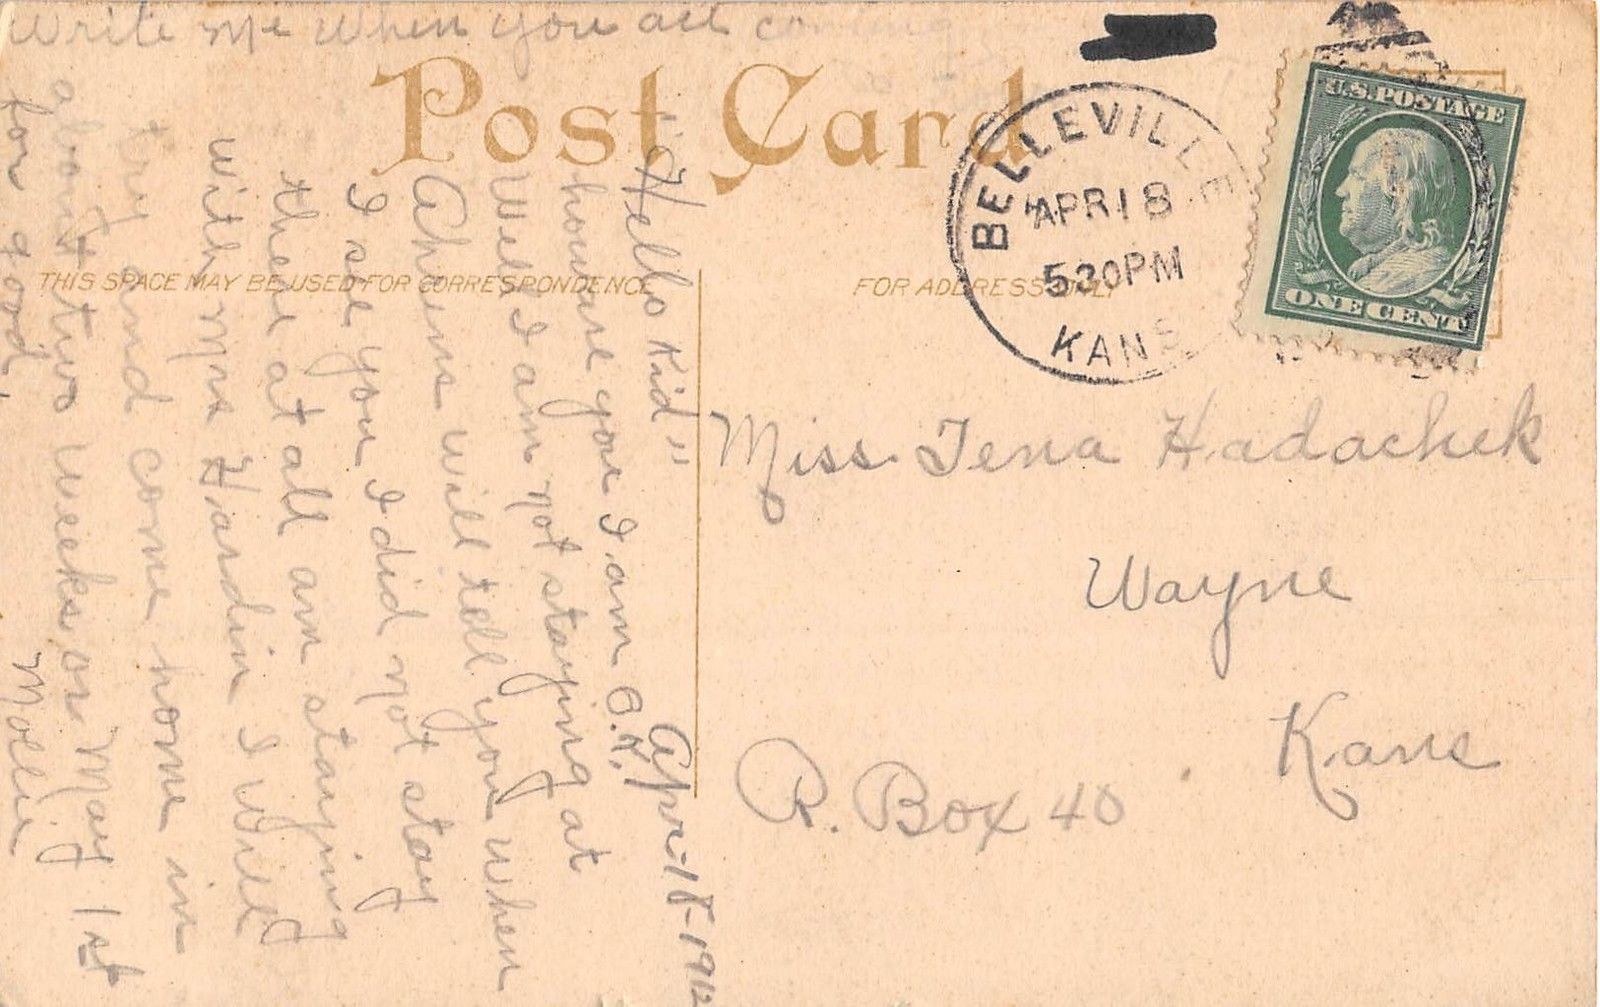 Write me when you all coming
Post Card
THIS SPACE MAY BE USED FOR CORRESPONDENCE
FOR ADDRESS ONLY
BELLEVILLE
APR 18
530PM
KANS
U.S. POSTAGE
ONE CENT
April 18-1912
"Hello Kid"
how are you I am O.K.
Well I am not staying at
Ahrens will tell you when
I see you I did not stay
there at all am staying
with Mrs Hardin I will
try and come home in
about two weeks or May 1st
for good.
Mollie
Miss Tena Hadachek
Wayne
Kans
R. Box 40